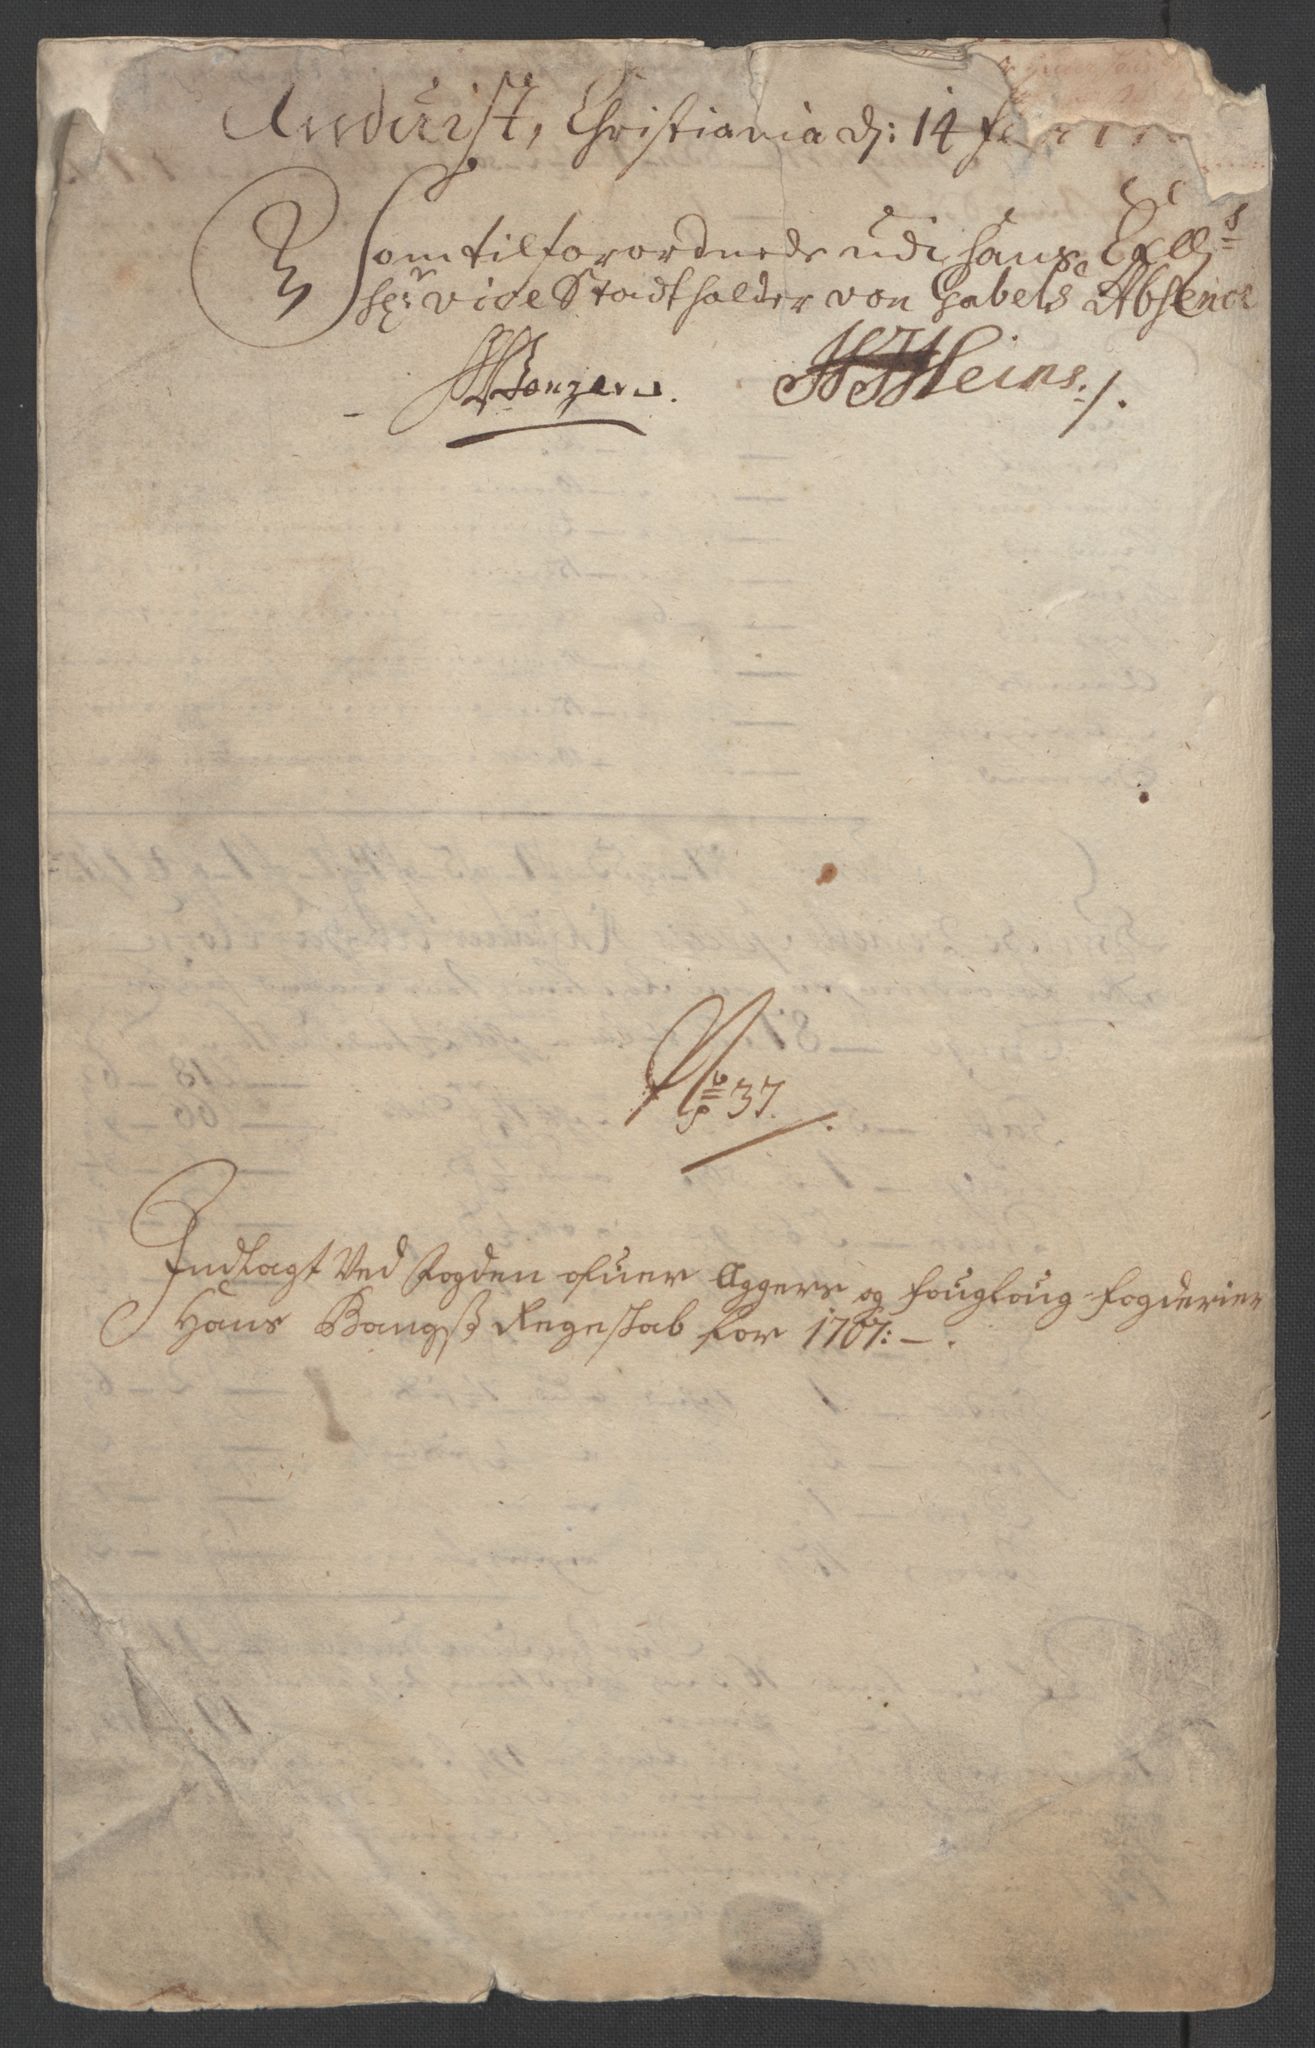 Reviderist, Christiania d: 14 febr: 17
Som tilforordnede udi hans Exell:s
hr: vice Stadtholder von Gabels Absence
HHHeins./.
No 37.
Indlagt Ved Fogden ofuer Aggers og fougloug fogderier
Hans Bangs Regnskab for 1707:-.